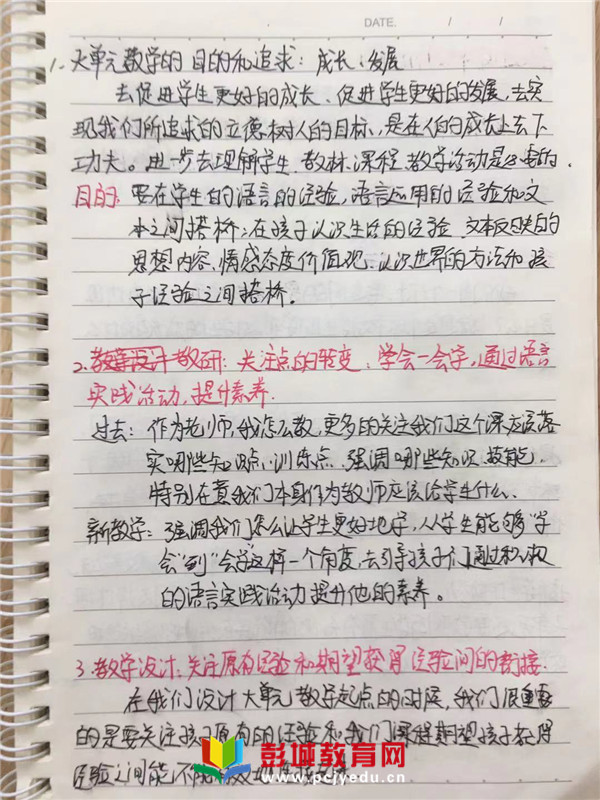 DATE. / /
1. 大单元教学的目的和追求：成长、发展
去促进学生更好的成长、促进学生更好的发展，去实
现我们所追求的立德树人的目标，是在人的成长上去下
功夫。进一步去理解学生、教材、课程、教学活动是必要的。
目的：要在学生的语言的经验，语言应用的经验和文
本之间搭桥；在孩子认识生活的经验、文本反映的
思想内容、情感态度价值观、认识世界的方法和孩
子经验之间搭桥。
2. 教学设计 教研：关注点的转变：学会—会学，通过语言
实践活动，提升素养。
过去：作为老师，我怎么教，更多的关注我们这个课应该落
实哪些知识点、训练点，强调哪些知识、技能，
特别在意我们本身作为教师应该给学生什么。
新教学：强调我们怎么让学生更好地学，从学生能够“学
会”到“会学”这样一个角度，去引导孩子们通过积极
的语言实践活动提升他的素养。
3. 教学设计：关注原有经验和期望获得经验间的衔接。
在我们设计大单元教学起点的时候，我们很重要
的是要关注孩子原有的经验和我们课程期望孩子获得
经验之间能不能
彭城教育网
www.pcjyedu.cn